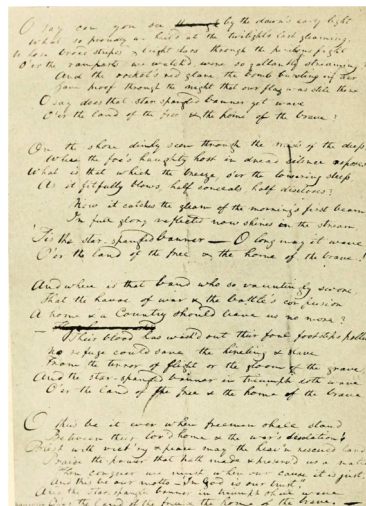 O say can you see by the dawn's early light
What so proudly we hail'd at the twilight's last gleaming,
Whose broad stripes & bright stars through the perilous fight
O'er the ramparts we watch'd, were so gallantly streaming?
And the rocket's red glare, the bomb bursting in air,
Gave proof through the night that our flag was still there
O say does that star-spangled banner yet wave
O'er the land of the free & the home of the brave?
On the shore dimly seen through the mists of the deep,
Where the foe's haughty host in dread silence reposes
What is that which the breeze, o'er the towering steep,
As it fitfully blows, half conceals half discloses?
Now it catches the gleam of the morning's first beam
In full glory reflected now shines in the stream
'Tis the star-spangled banner — O long may it wave
O'er the land of the free & the home of the brave!
And where is that band who so vauntingly swore,
That the havoc of war & the battle's confusion
A home & a Country should leave us no more?
— Their blood has wash'd out their foul footsteps pollu
No refuge could save the hireling & slave
From the terror of flight or the gloom of the grave
And the star-spangled banner in triumph doth wave
O'er the land of the free & the home of the brave
O thus be it ever when freemen shall stand
Between their lov'd home & the war's desolation!
Blest with vict'ry & peace may the heav'n rescued land
Praise the power that hath made & preserv'd us a nati
Then conquer we must when our cause it is just,
And this be our motto — "In God is our trust"
And the star-spangled banner in triumph shall wave
O'er the land of the free & the home of the brave. —